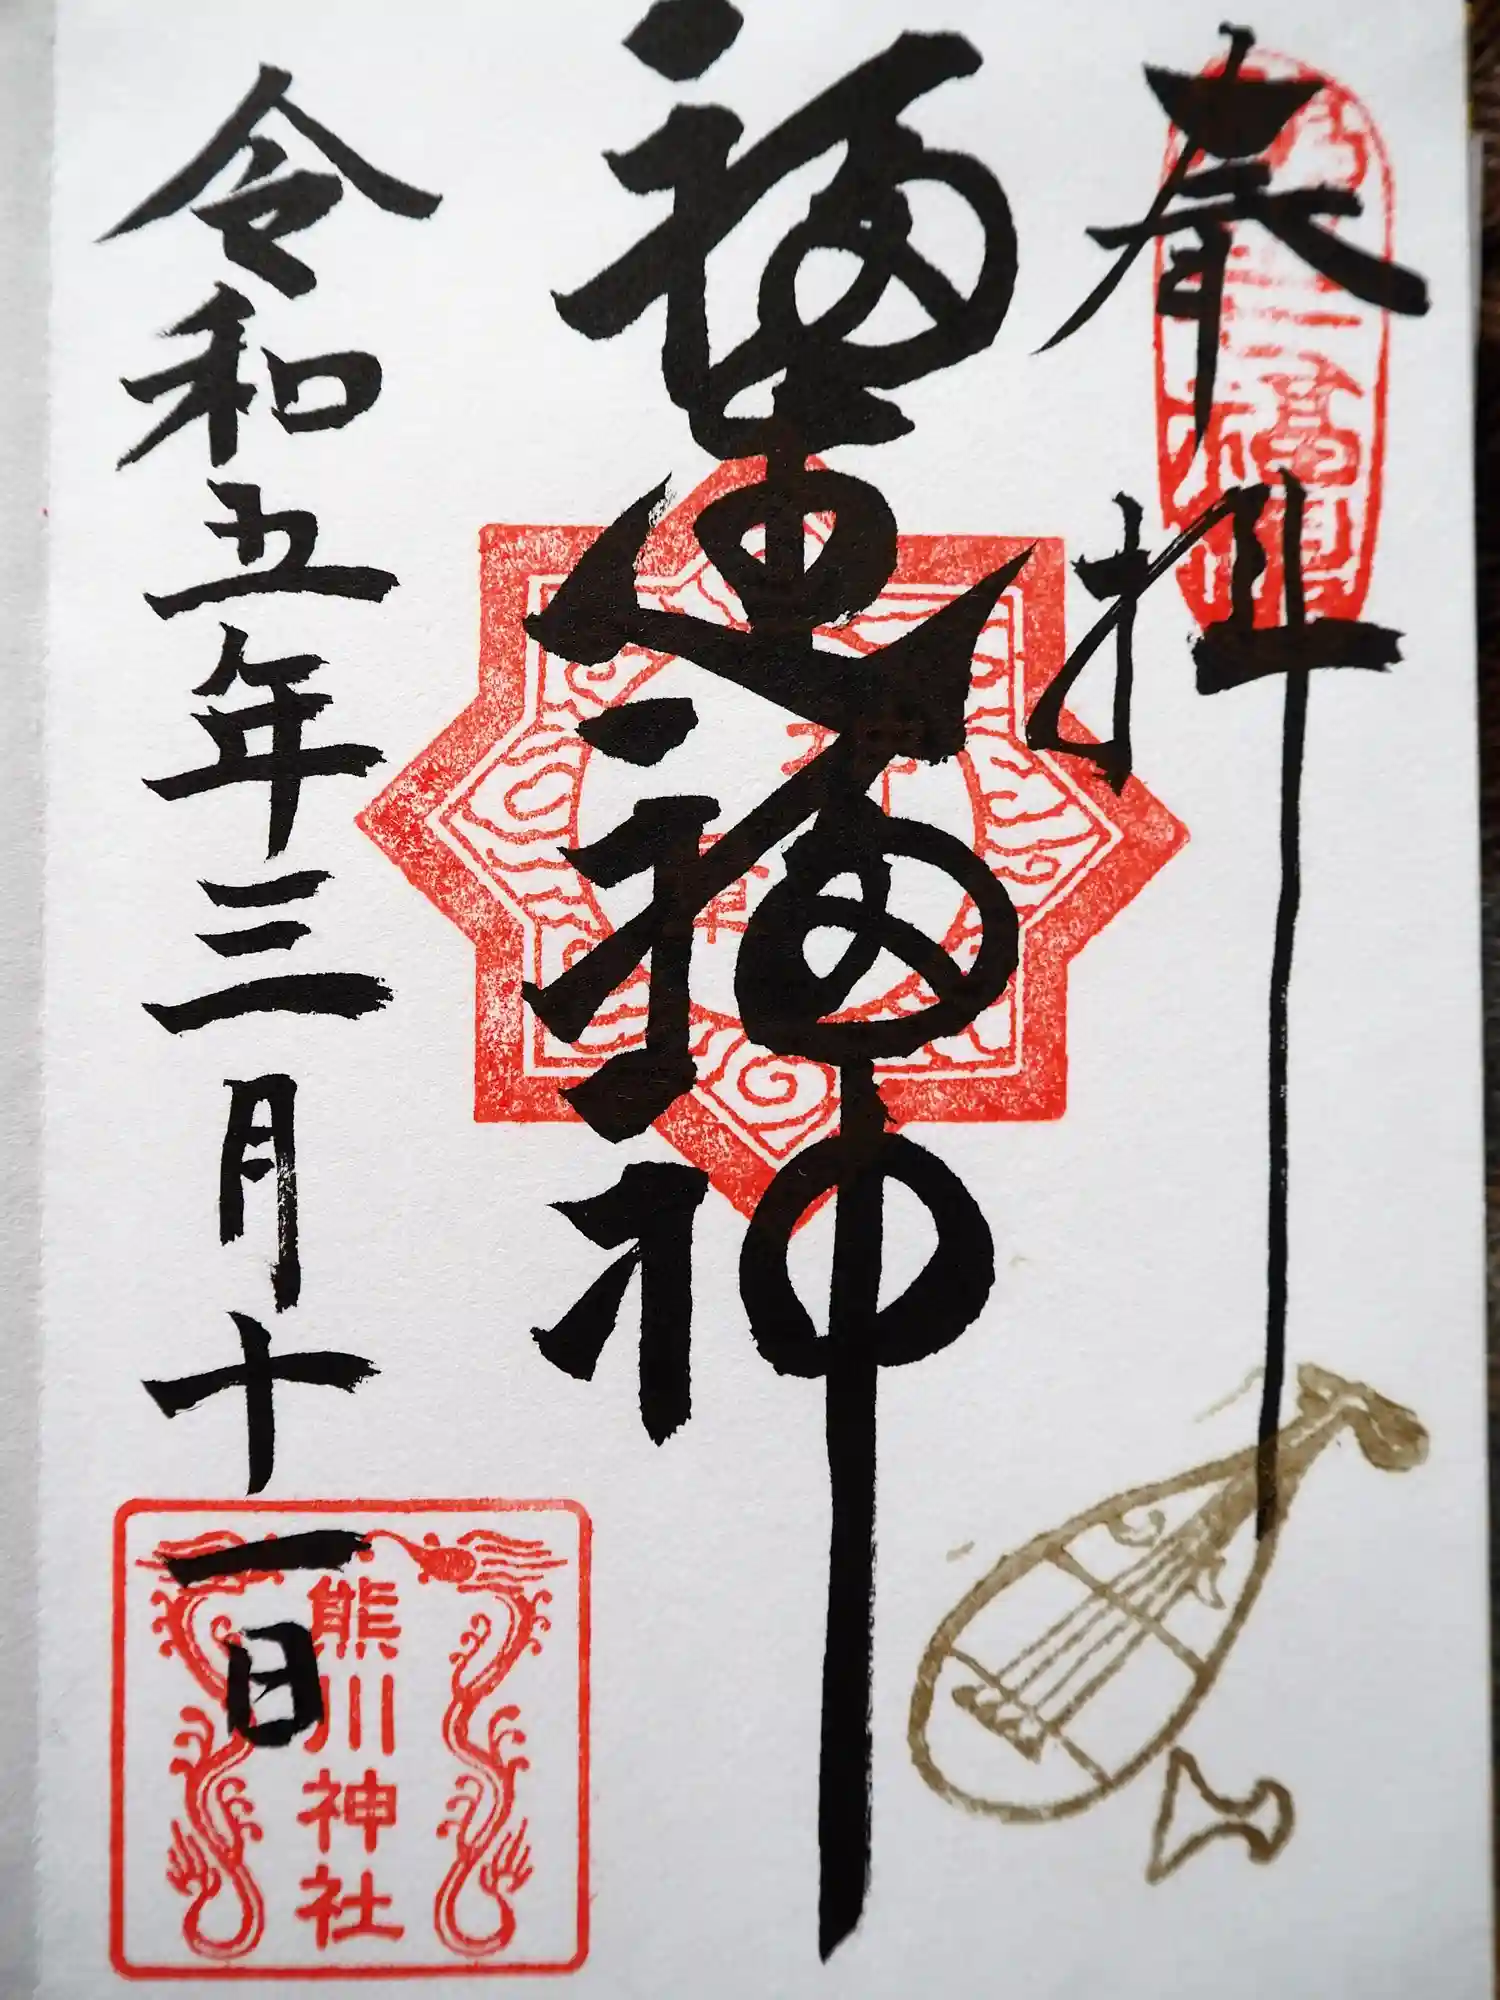 奉拝
福運福神
令和五年三月十一日
熊川神社